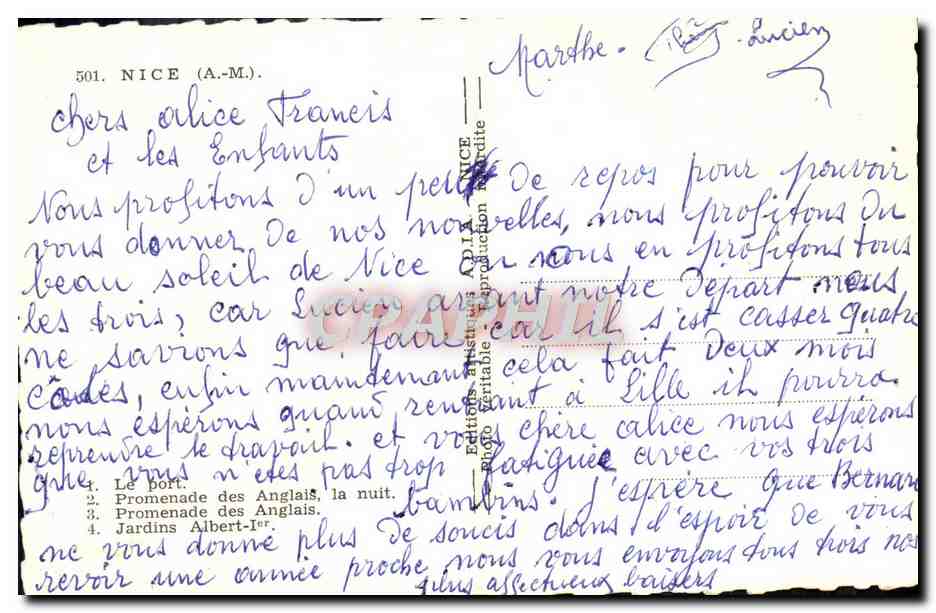 Marthe. Lucien
501. NICE (A.-M.).
chers alice Francis
et les Enfants
Nous profitons d'un peu de repos pour pouvoir
vous donner de nos nouvelles, nous profitons du
beau soleil de Nice nous en profitons tous
les trois, car Lucien avant notre Départ nous
ne savions que faire car il s'est casser quatre
côtes, enfin maintenant cela fait Deux mois
nous espérons quand rentrant à Lille il pourra
reprendre le travail. et vous chère alice nous espérons
que vous n'êtes pas trop fatiguée avec vos trois
bambins. J'espère que Bernard
ne vous donne plus de soucis dans l'espoir de vous
revoir une année proche nous vous envoyons tous trois nos
plus affectueux baisers
1. Le port.
2. Promenade des Anglais, la nuit.
3. Promenade des Anglais.
4. Jardins Albert-Ier.
— Editions artistiques A.D.I.A. - NICE —
Photo véritable - Reproduction interdite —
CPAPHIL